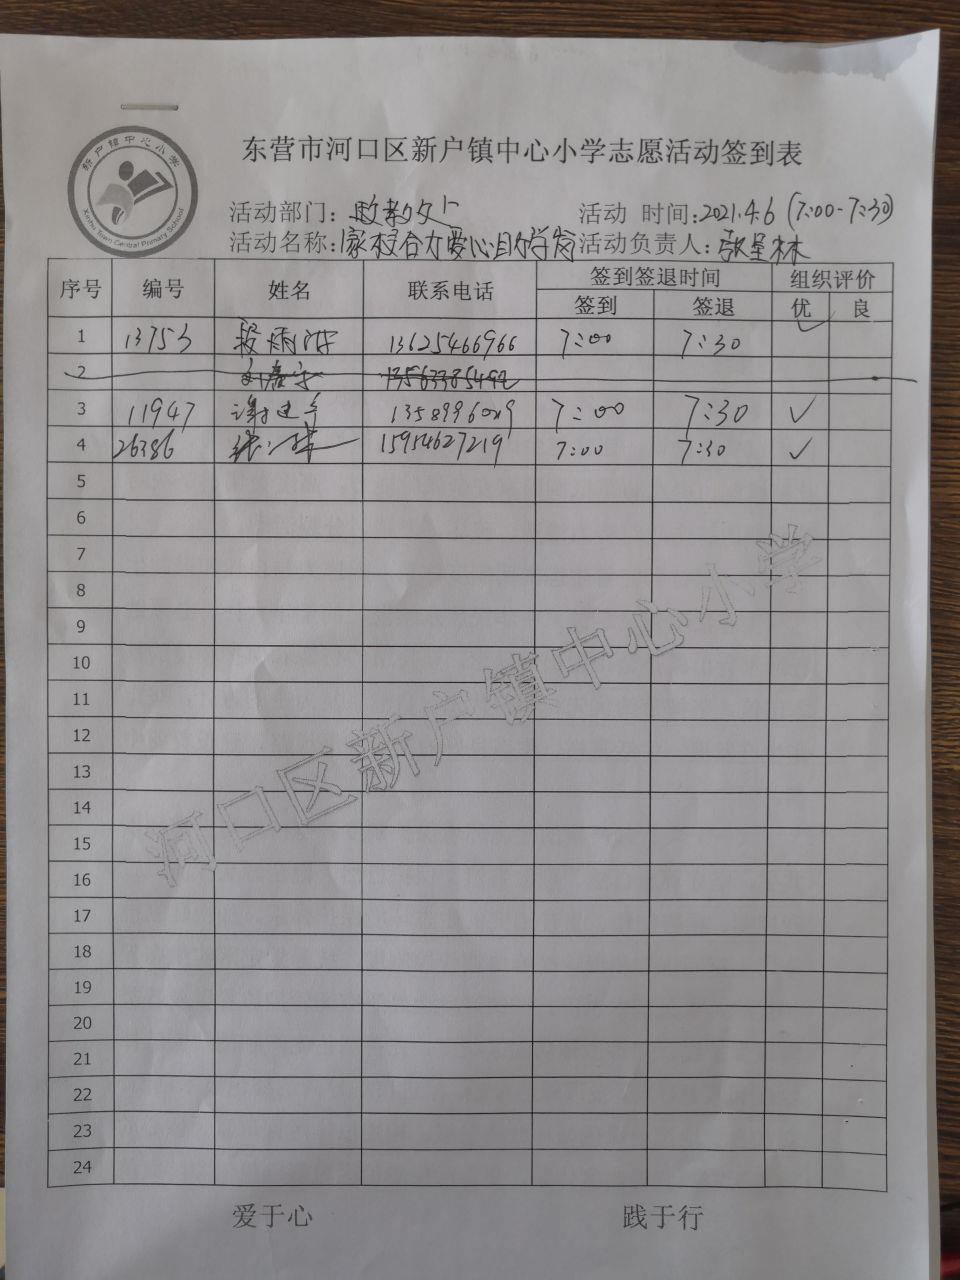 新户镇中心小学
Xinhu Town Central Primary School
东营市河口区新户镇中心小学志愿活动签到表
活动部门: 活动 时间:2021.4.6 (7:00-7:30)
活动名称:家校合力爱心助学岗 活动负责人:
序号 编号 姓名 联系电话 签到签退时间 组织评价
签到 签退 优 良
1 13753 段雨 13625466966 7:00 7:30 ✓
2
3 11947 谢建 7:00 7:30 ✓
4 26386 张 15954627219 7:00 7:30 ✓
5
6
7
8
9
10
11
12
13
14
15
16
17
18
19
20
21
22
23
24
河口区新户镇中心小学
爱于心 践于行